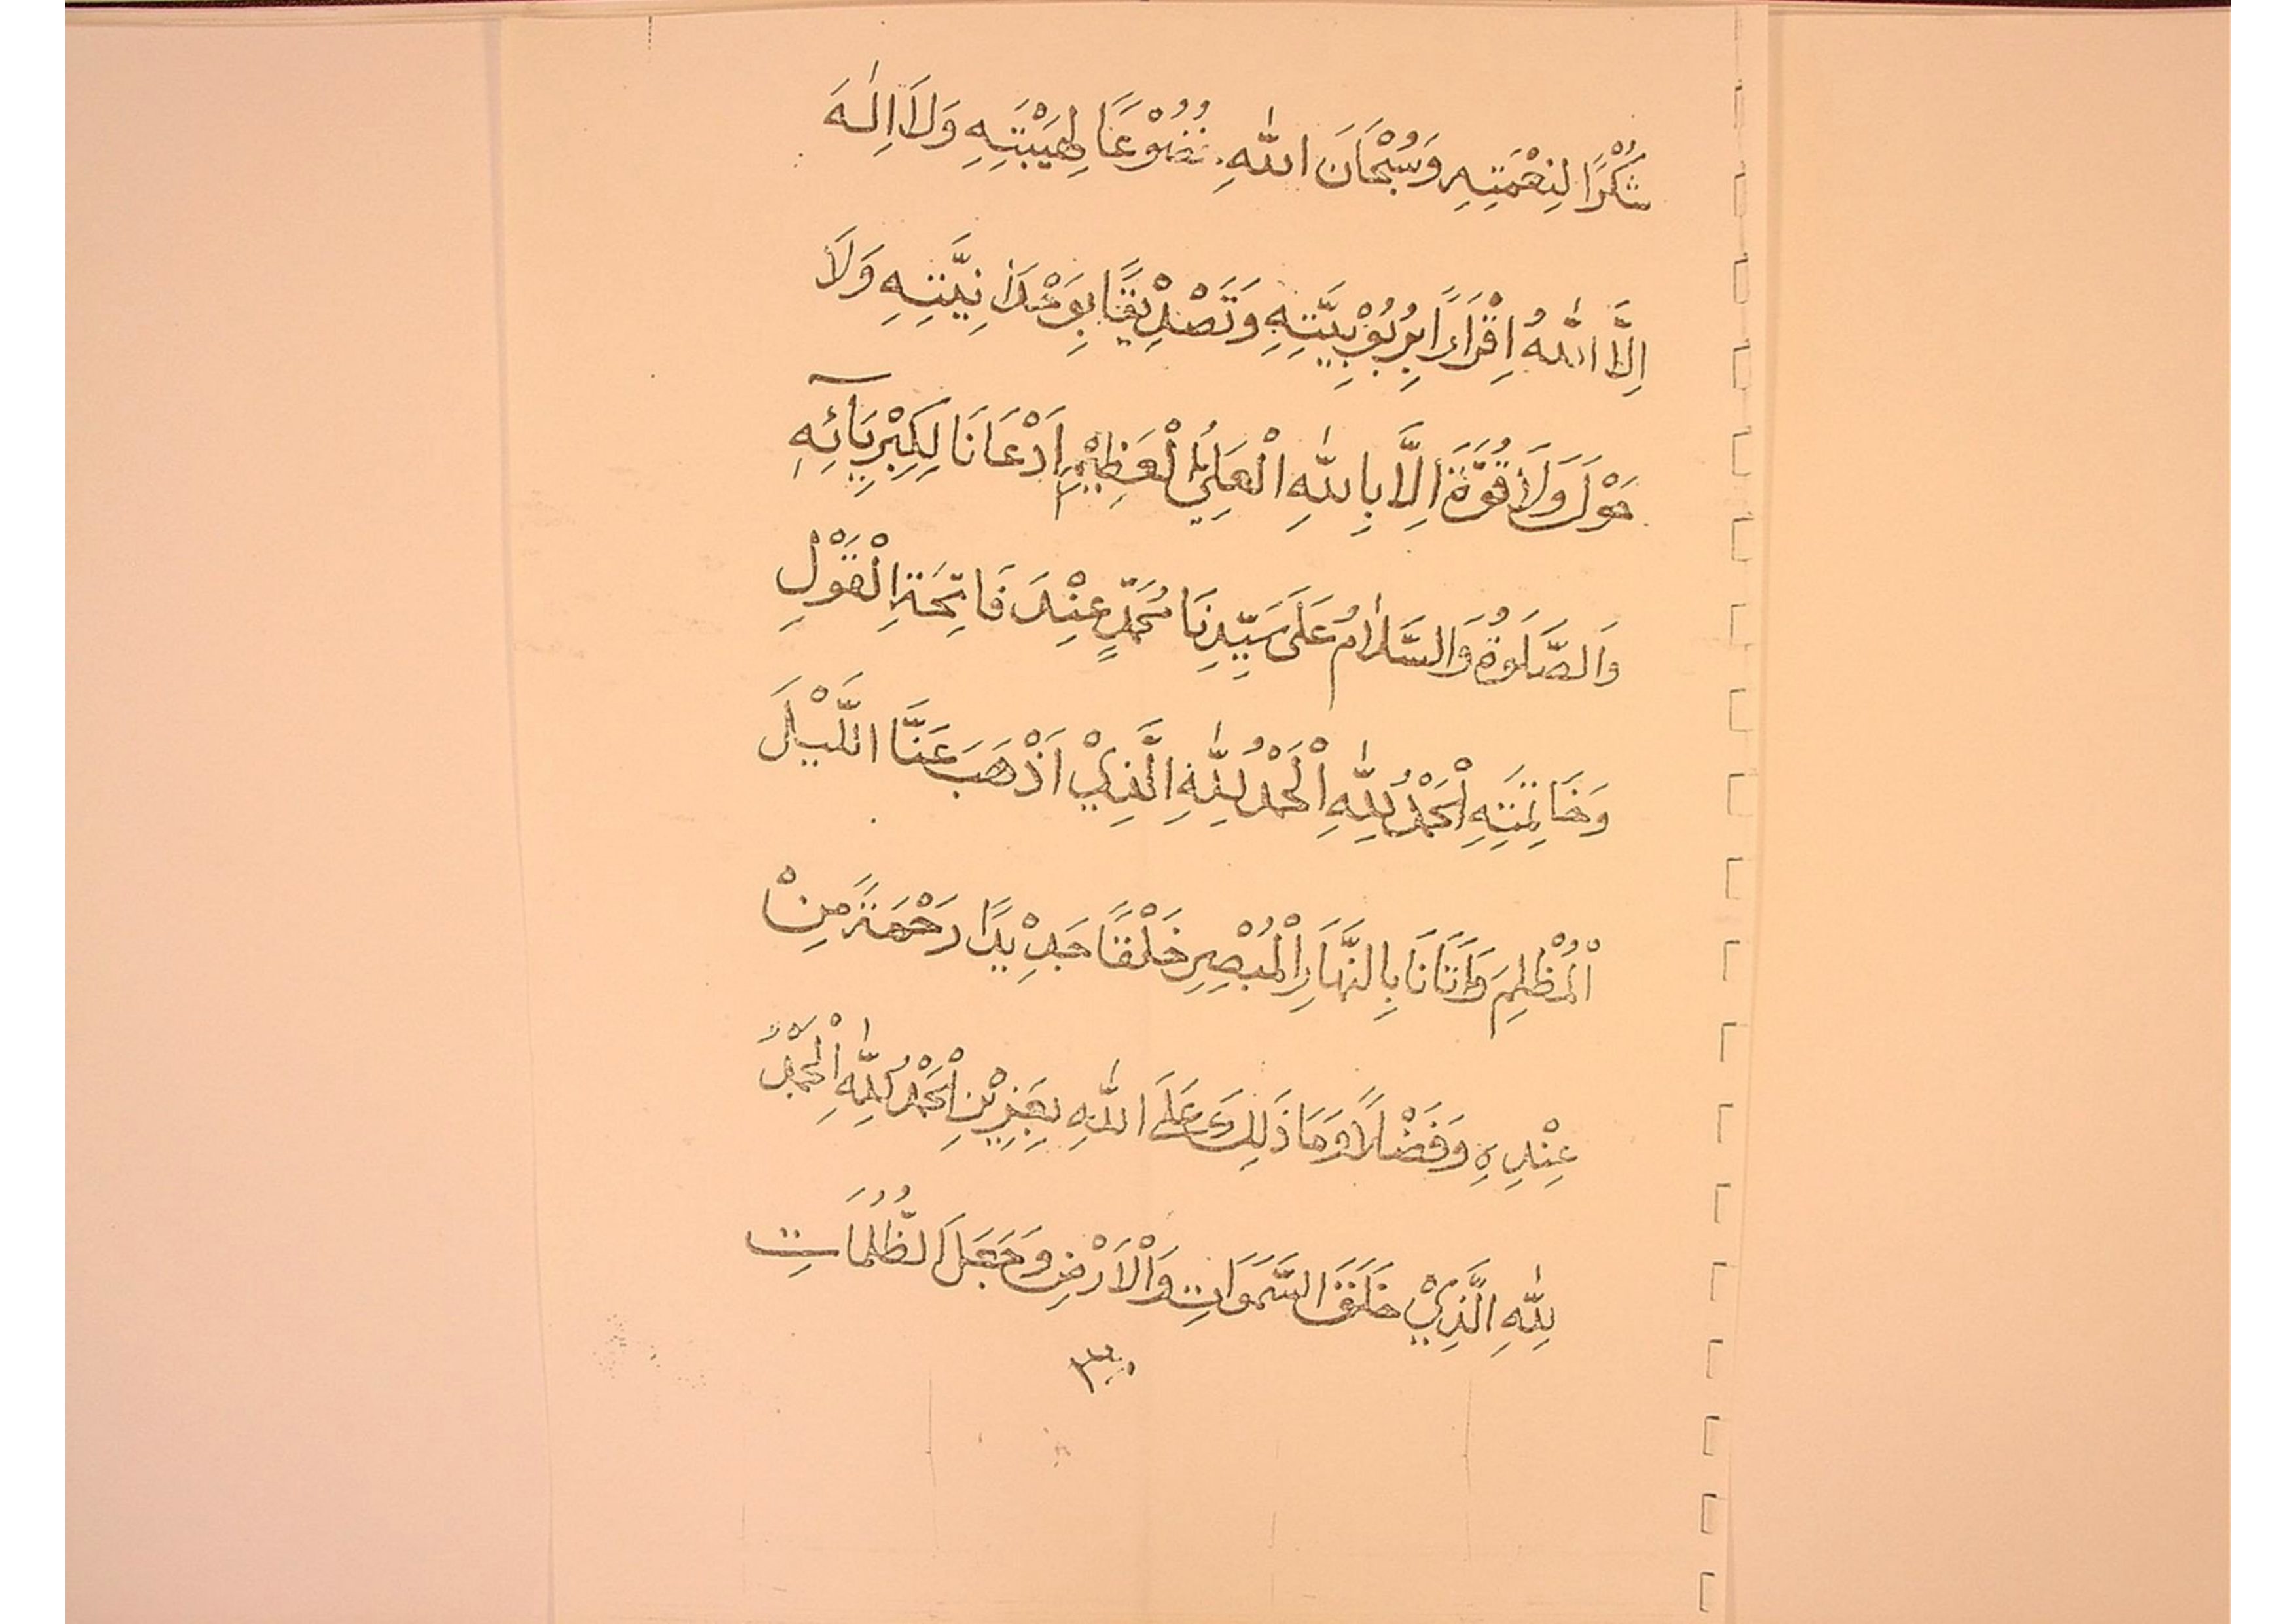 شُكْرًا لِنِعْمَتِهِ وَسُبْحَانَ اللّٰهِ خُضُوْعًا لِهَيْبَتِهِ وَلَا اِلٰهَ
اِلَّا اللّٰهُ اِقْرَارًا بِرُبُوْبِيَّتِهِ وَتَصْدِيْقًا بِوَحْدَانِيَّتِهِ وَلَا
حَوْلَ وَلَا قُوَّةَ اِلَّا بِاللّٰهِ الْعَلِيِّ الْعَظِيْمِ اِذْعَانًا لِكِبْرِيَآئِهِ
وَالصَّلَوةُ وَالسَّلَامُ عَلَى سَيِّدِنَا مُحَمَّدٍ عِنْدَ فَاتِحَةِ الْقَوْلِ
وَخَاتِمَتِهِ اَلْحَمْدُ لِلّٰهِ اَلْحَمْدُ لِلّٰهِ الَّذِيْ اَذْهَبَ عَنَّا اللَّيْلَ
الْمُظْلِمَ وَاَتَانَا بِالنَّهَارِ الْمُبْصِرِ خَلْقًا جَدِيْدًا رَحْمَةً مِنْ
عِنْدِهِ وَفَضْلًا وَمَا ذَلِكَ عَلَى اللّٰهِ بِعَزِيْزٍ اَلْحَمْدُ لِلّٰهِ اَلْحَمْدُ
لِلّٰهِ الَّذِيْ خَلَقَ السَّمَوَاتِ وَالْاَرْضَ وَجَعَلَ الظُّلُمَاتِ